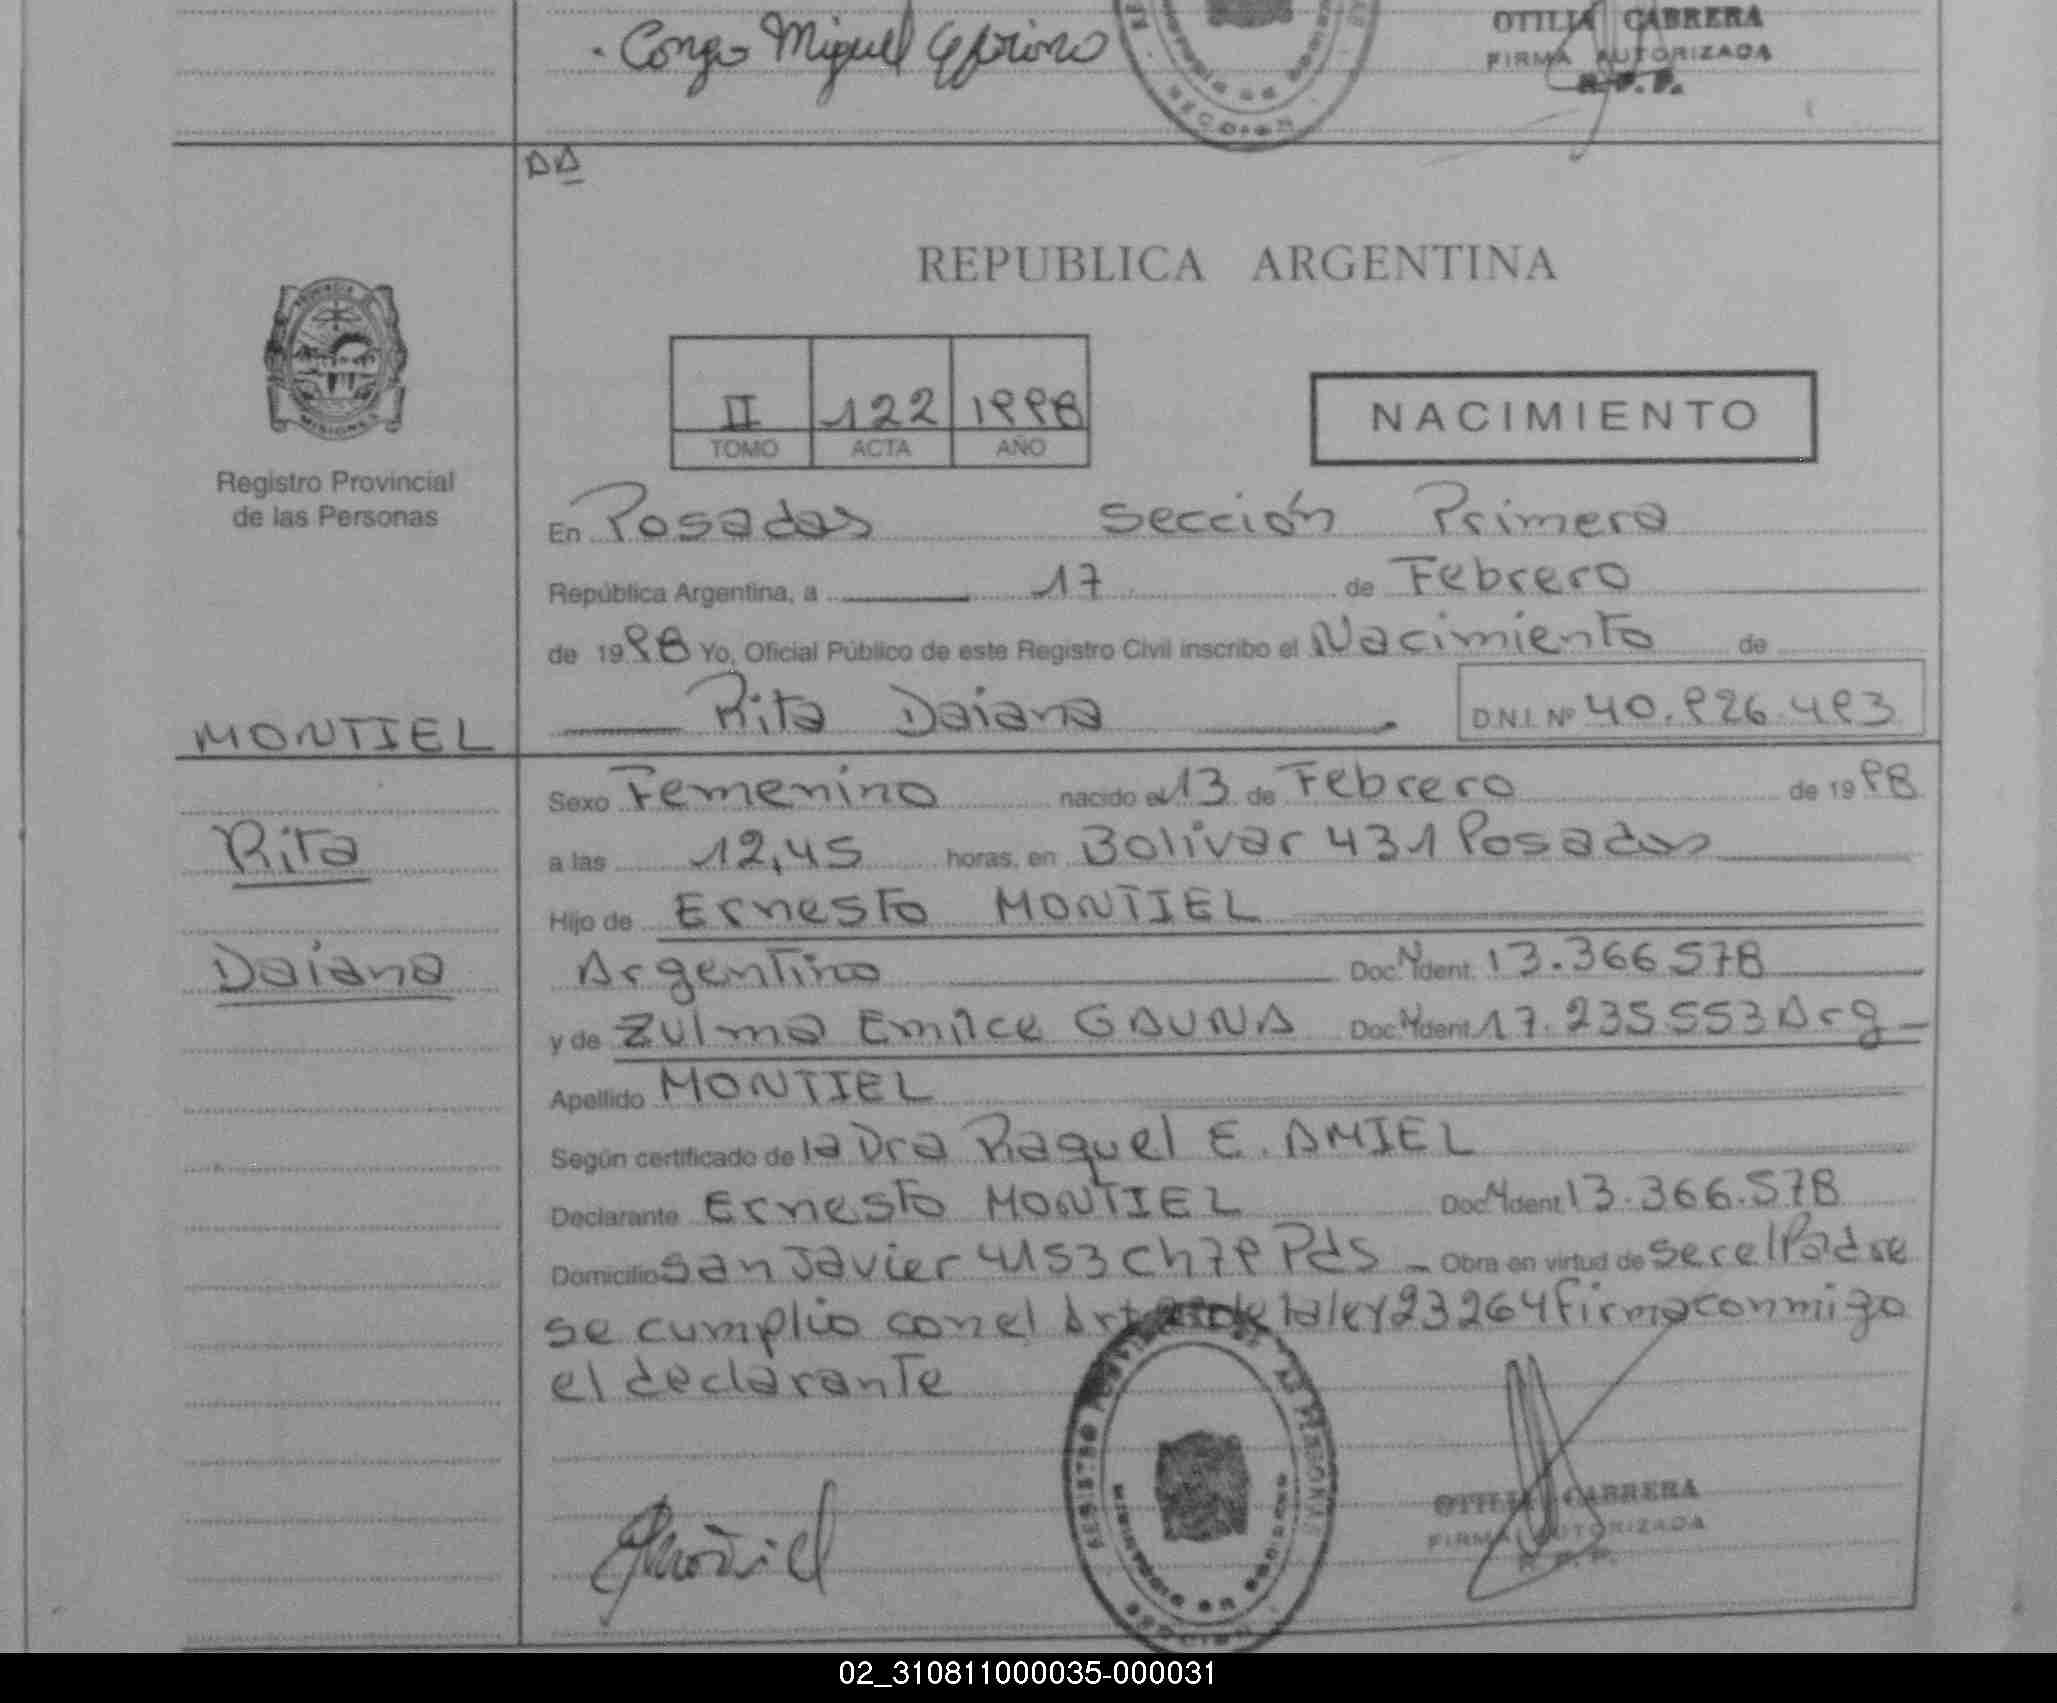 Miguel
OTILIA CABRERA
FIRMA AUTORIZADA
R.P.P.
REPUBLICA ARGENTINA
II 122 1998
TOMO ACTA AÑO
NACIMIENTO
PROVINCIA DE
MISIONES
Registro Provincial
de las Personas
En Posadas Sección Primera
República Argentina, a 17 de Febrero
de 1998 Yo, Oficial Público de este Registro Civil inscribo el Nacimiento de
Rita Daiana D.N.I. Nº 40.926.493
MONTIEL
Rita
Daiana
Sexo Femenino nacido el 13 de Febrero de 1998
a las 12,45 horas, en Bolivar 431 Posadas
Hijo de Ernesto MONTIEL
Argentino Doc. Ident. 13.366.578
y de Zulma Emilce GAUNA Doc. Ident. 17.235553 Arg
Apellido MONTIEL
Según certificado de la Dra Raquel E. AMIEL
Declarante Ernesto MONTIEL Doc. Ident. 13.366.578
Domicilio San Javier 4153 Ch 79 Pds - Obra en virtud de ser el Padre
se cumplio con el Art de la ley 23264 firma conmigo
el declarante
REGISTRO PROVINCIAL DE LAS PERSONAS
MINISTERIO DE GOBIERNO
SECCION
OTILIA CABRERA
FIRMA AUTORIZADA
R.P.P.
02_310811000035-000031